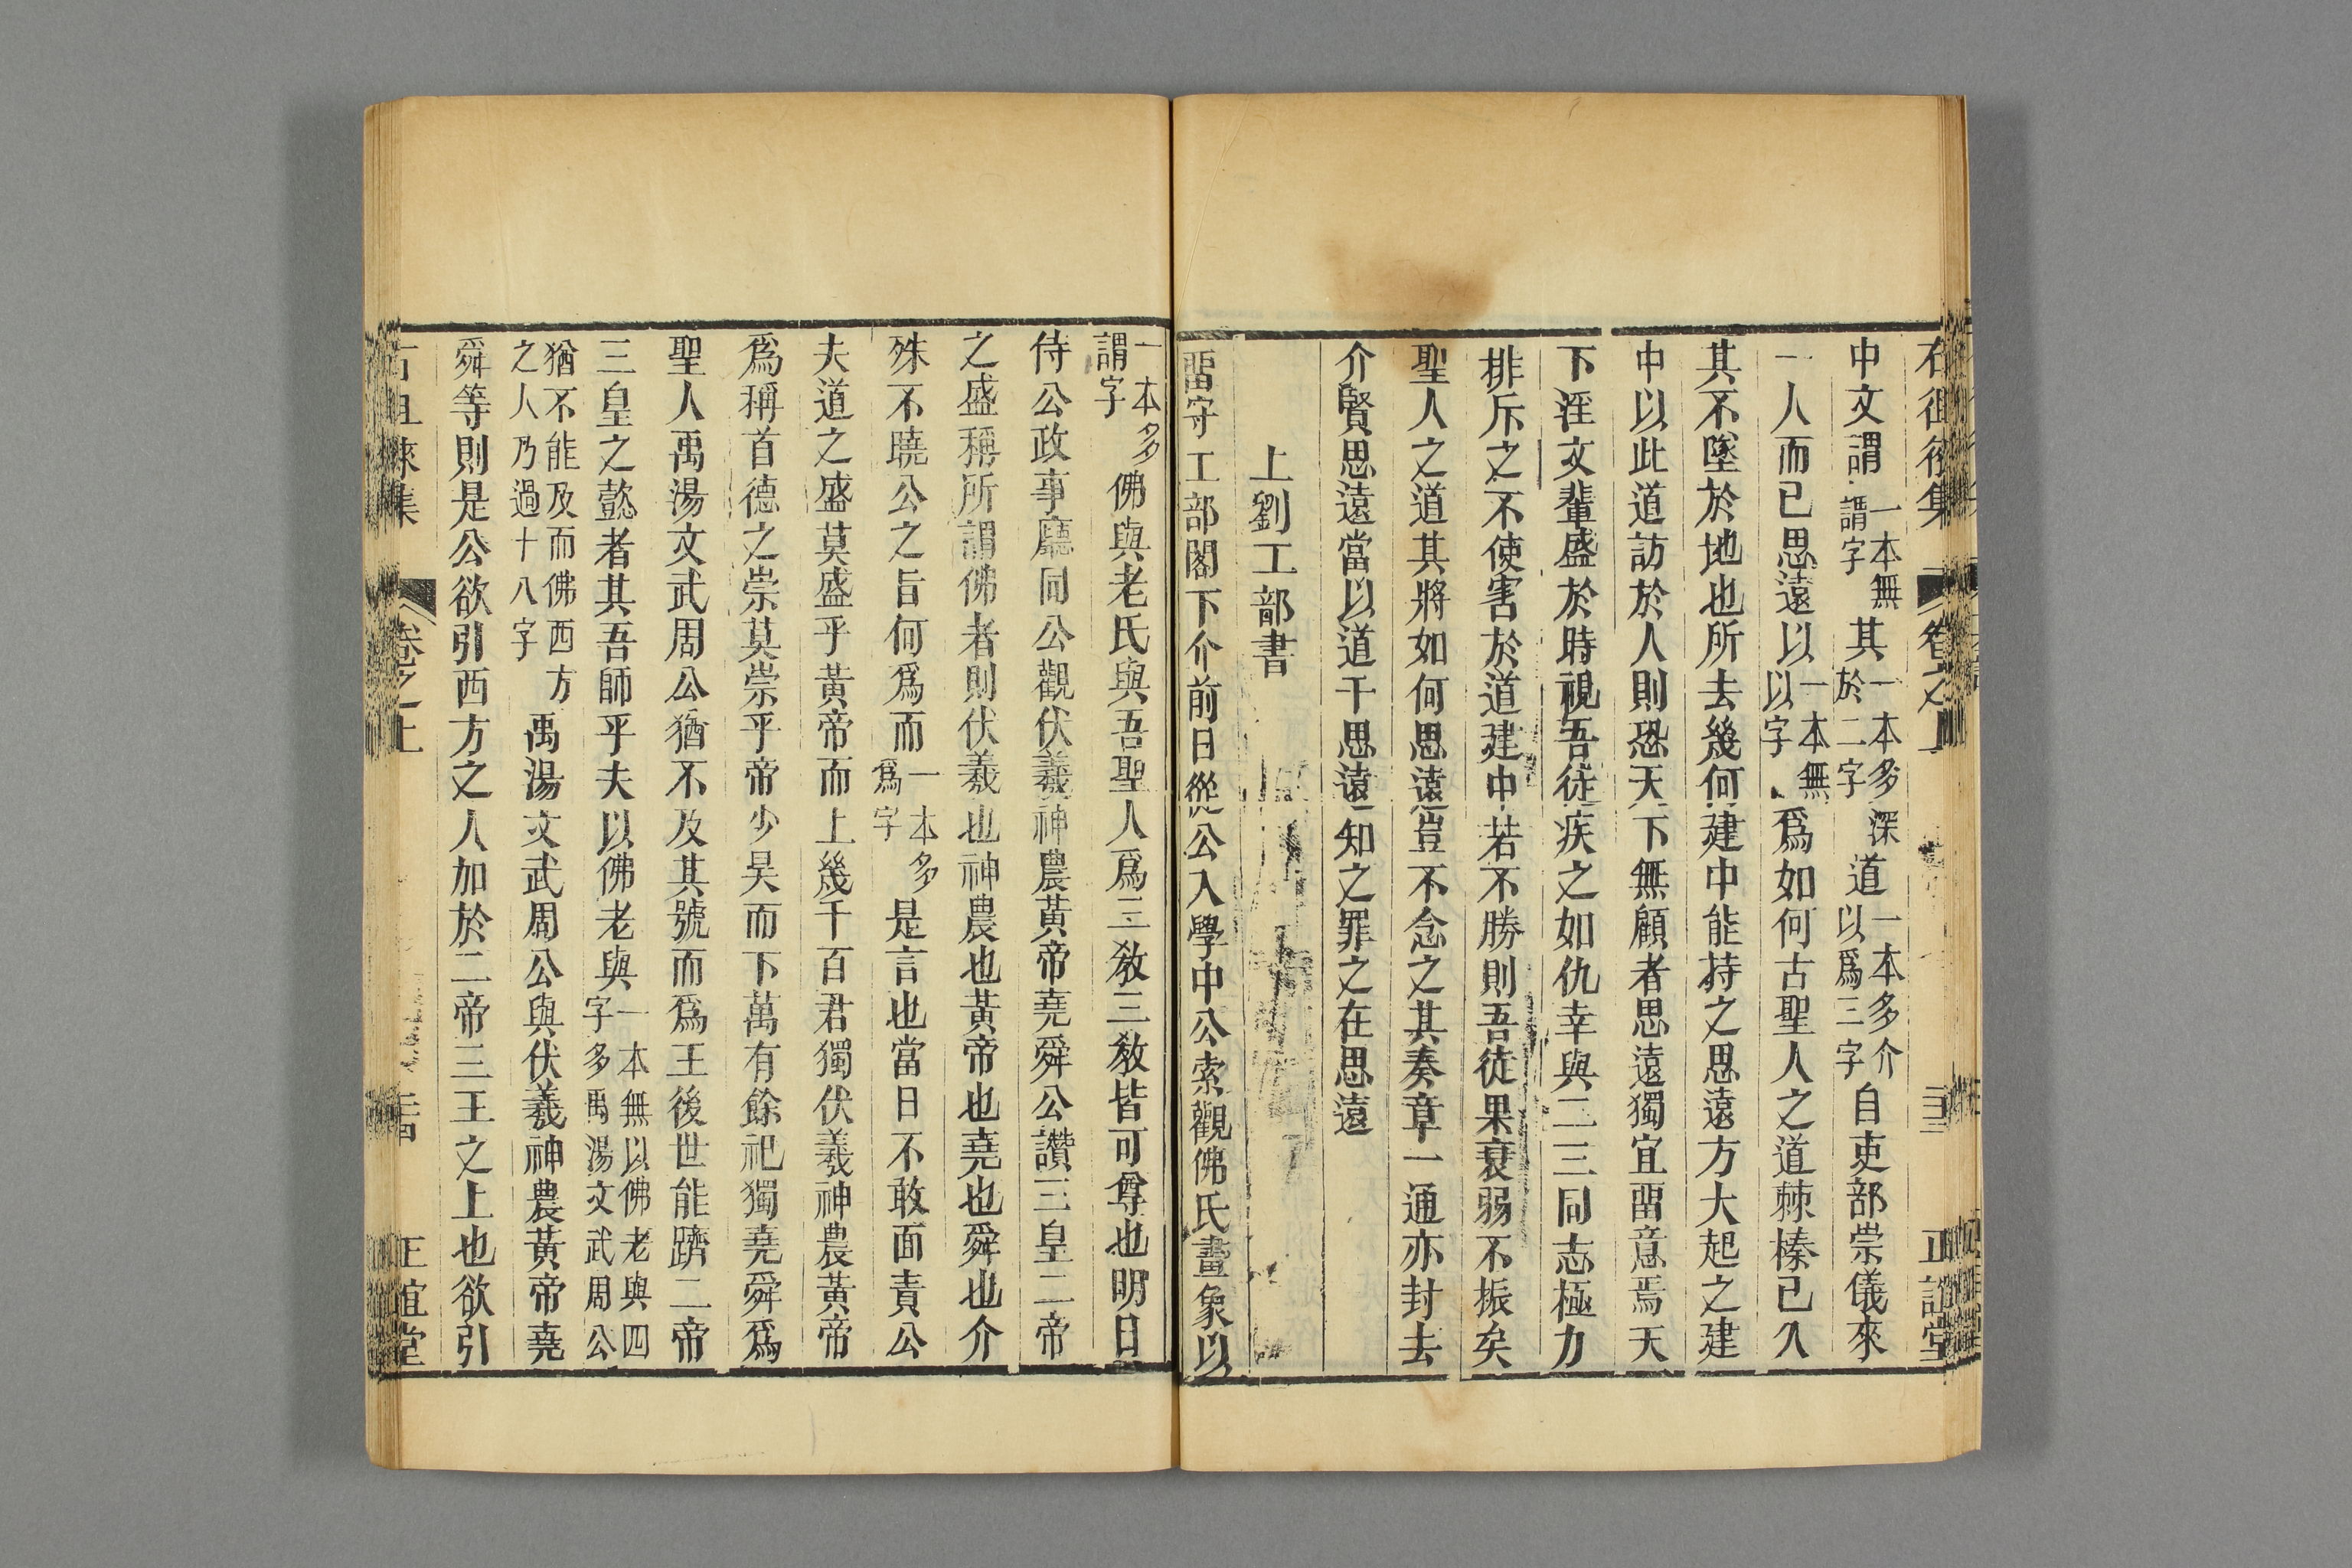 中文謂一本無謂字其一本多於二字深道一本多介以爲三字自吏部崇儀來
一人而已思遠以一本無以字爲如何古聖人之道棘榛已久
其不墜於地也所去幾何建中能持之思遠方大起之建
中以此道訪於人則恐天下無顧者思遠獨宜畱意焉天
下淫文輩盛於時視吾徒疾之如仇幸與二三同志極力
排斥之不使害於道建中若不勝則吾徒果衰弱不振矣
聖人之道其將如何思遠豈不念之其奏章一通亦封去
介賢思遠當以道干思遠知之罪之在思遠
上劉工部書
畱守工部閣下介前日從公入學中公索觀佛氏畫象以
一本多謂字佛與老氏與吾聖人爲三敎三敎皆可尊也明日
侍公政事廳同公觀伏羲神農黃帝堯舜公讚三皇二帝
之盛稱所謂佛者則伏羲也神農也黃帝也堯也舜也介
殊不曉公之旨何爲而一本多爲字是言也當日不敢面責公
夫道之盛莫盛乎黃帝而上幾千百君獨伏羲神農黃帝
爲稱首德之崇莫崇乎帝少昊而下萬有餘祀獨堯舜爲
聖人禹湯文武周公猶不及其號而爲王後世能躋二帝
三皇之懿者其吾師乎夫以佛老與一本無以佛老與四字多禹湯文武周公
猶不能及而佛西方之人乃過十八字禹湯文武周公與伏羲神農黃帝堯
舜等則是公欲引西方之人加於二帝三王之上也欲引
卷之上
正誼堂